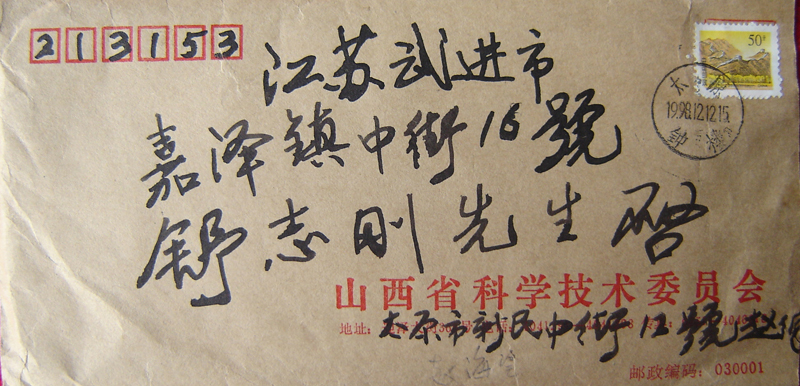 213153
50分
江苏武进市
太原
1998.12.12.15
嘉泽鎮中街16號
舒志刚先生啓
山西省科学技术委员会
地址:
太原市新民中街12號赵
邮政编码: 030001